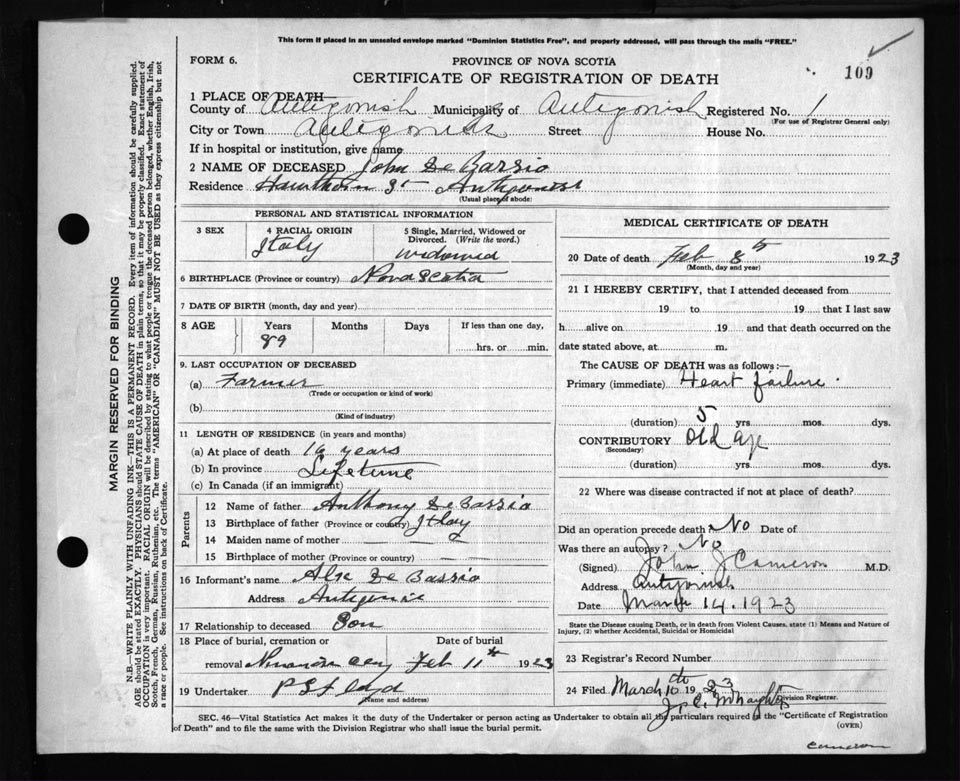 This form if placed in an unsealed envelope marked "Dominion Statistics Free", and properly addressed, will pass through the mails "FREE."
FORM 6.
PROVINCE OF NOVA SCOTIA
CERTIFICATE OF REGISTRATION OF DEATH
109
1 PLACE OF DEATH—
County of Antigonish Municipality of Antigonish Registered No. 1
(For use of Registrar General only)
City or Town Antigonish Street House No.
If in hospital or institution, give name
2 NAME OF DECEASED John De Bassio
Residence Hawthorn St Antigonish
(Usual place of abode:
PERSONAL AND STATISTICAL INFORMATION
3 SEX
4 RACIAL ORIGIN
Italy
5 Single, Married, Widowed or Divorced. (Write the word.)
Widowed
6 BIRTHPLACE (Province or country) Nova Scotia
7 DATE OF BIRTH (month, day and year)
8 AGE Years Months Days If less than one day,
89 hrs. or min.
9. LAST OCCUPATION OF DECEASED
(a) Farmer
(Trade or occupation or kind of work)
(b)
(Kind of industry)
11 LENGTH OF RESIDENCE (in years and months)
(a) At place of death years
(b) In province Lifetime
(c) In Canada (if an immigrant)
Parents
12 Name of father Anthony De Bassio
13 Birthplace of father (Province or country) Italy
14 Maiden name of mother —
15 Birthplace of mother (Province or country) —
16 Informant's name De Bassio
Address Antigonish
17 Relationship to deceased Son
18 Place of burial, cremation or removal Date of burial
Feb 11th 1923
19 Undertaker
(Name and address)
MEDICAL CERTIFICATE OF DEATH
20 Date of death Feb 8th 1923
(Month, day and year)
21 I HEREBY CERTIFY, that I attended deceased from
19 to 19 that I last saw
h alive on 19 and that death occurred on the
date stated above, at m.
The CAUSE OF DEATH was as follows:—
Primary (immediate) Heart failure.
(duration) 5 yrs. mos. dys.
CONTRIBUTORY Old Age
(Secondary)
(duration) yrs. mos. dys.
22 Where was disease contracted if not at place of death?
Did an operation precede death? No Date of
Was there an autopsy? No
(Signed) John J Cameron M.D.
Address Antigonish
Date March 14. 1923
State the Disease causing Death, or in death from Violent Causes, state (1) Means and Nature of Injury, (2) whether Accidental, Suicidal or Homicidal
23 Registrar's Record Number
24 Filed March 16th 1923
Division Registrar.
SEC. 46—Vital Statistics Act makes it the duty of the Undertaker or person acting as Undertaker to obtain all the particulars required in the "Certificate of Registration of Death" and to file the same with the Division Registrar who shall issue the burial permit.
(OVER)
Cameron
MARGIN RESERVED FOR BINDING
N.B.—WRITE PLAINLY WITH UNFADING INK—THIS IS A PERMANENT RECORD. Every item of information should be carefully supplied.
AGE should be stated EXACTLY. PHYSICIANS should STATE CAUSE OF DEATH in plain terms, so that it may be properly classified. Exact statement of
OCCUPATION is very important. RACIAL ORIGIN will be described by stating to what people or tongue the deceased person belonged, whether English, Irish,
Scotch, French, German, Russian, Ruthenian, etc. The terms "AMERICAN" OR "CANADIAN" MUST NOT BE USED as they express citizenship but not
a race or people. See instructions on back of Certificate.